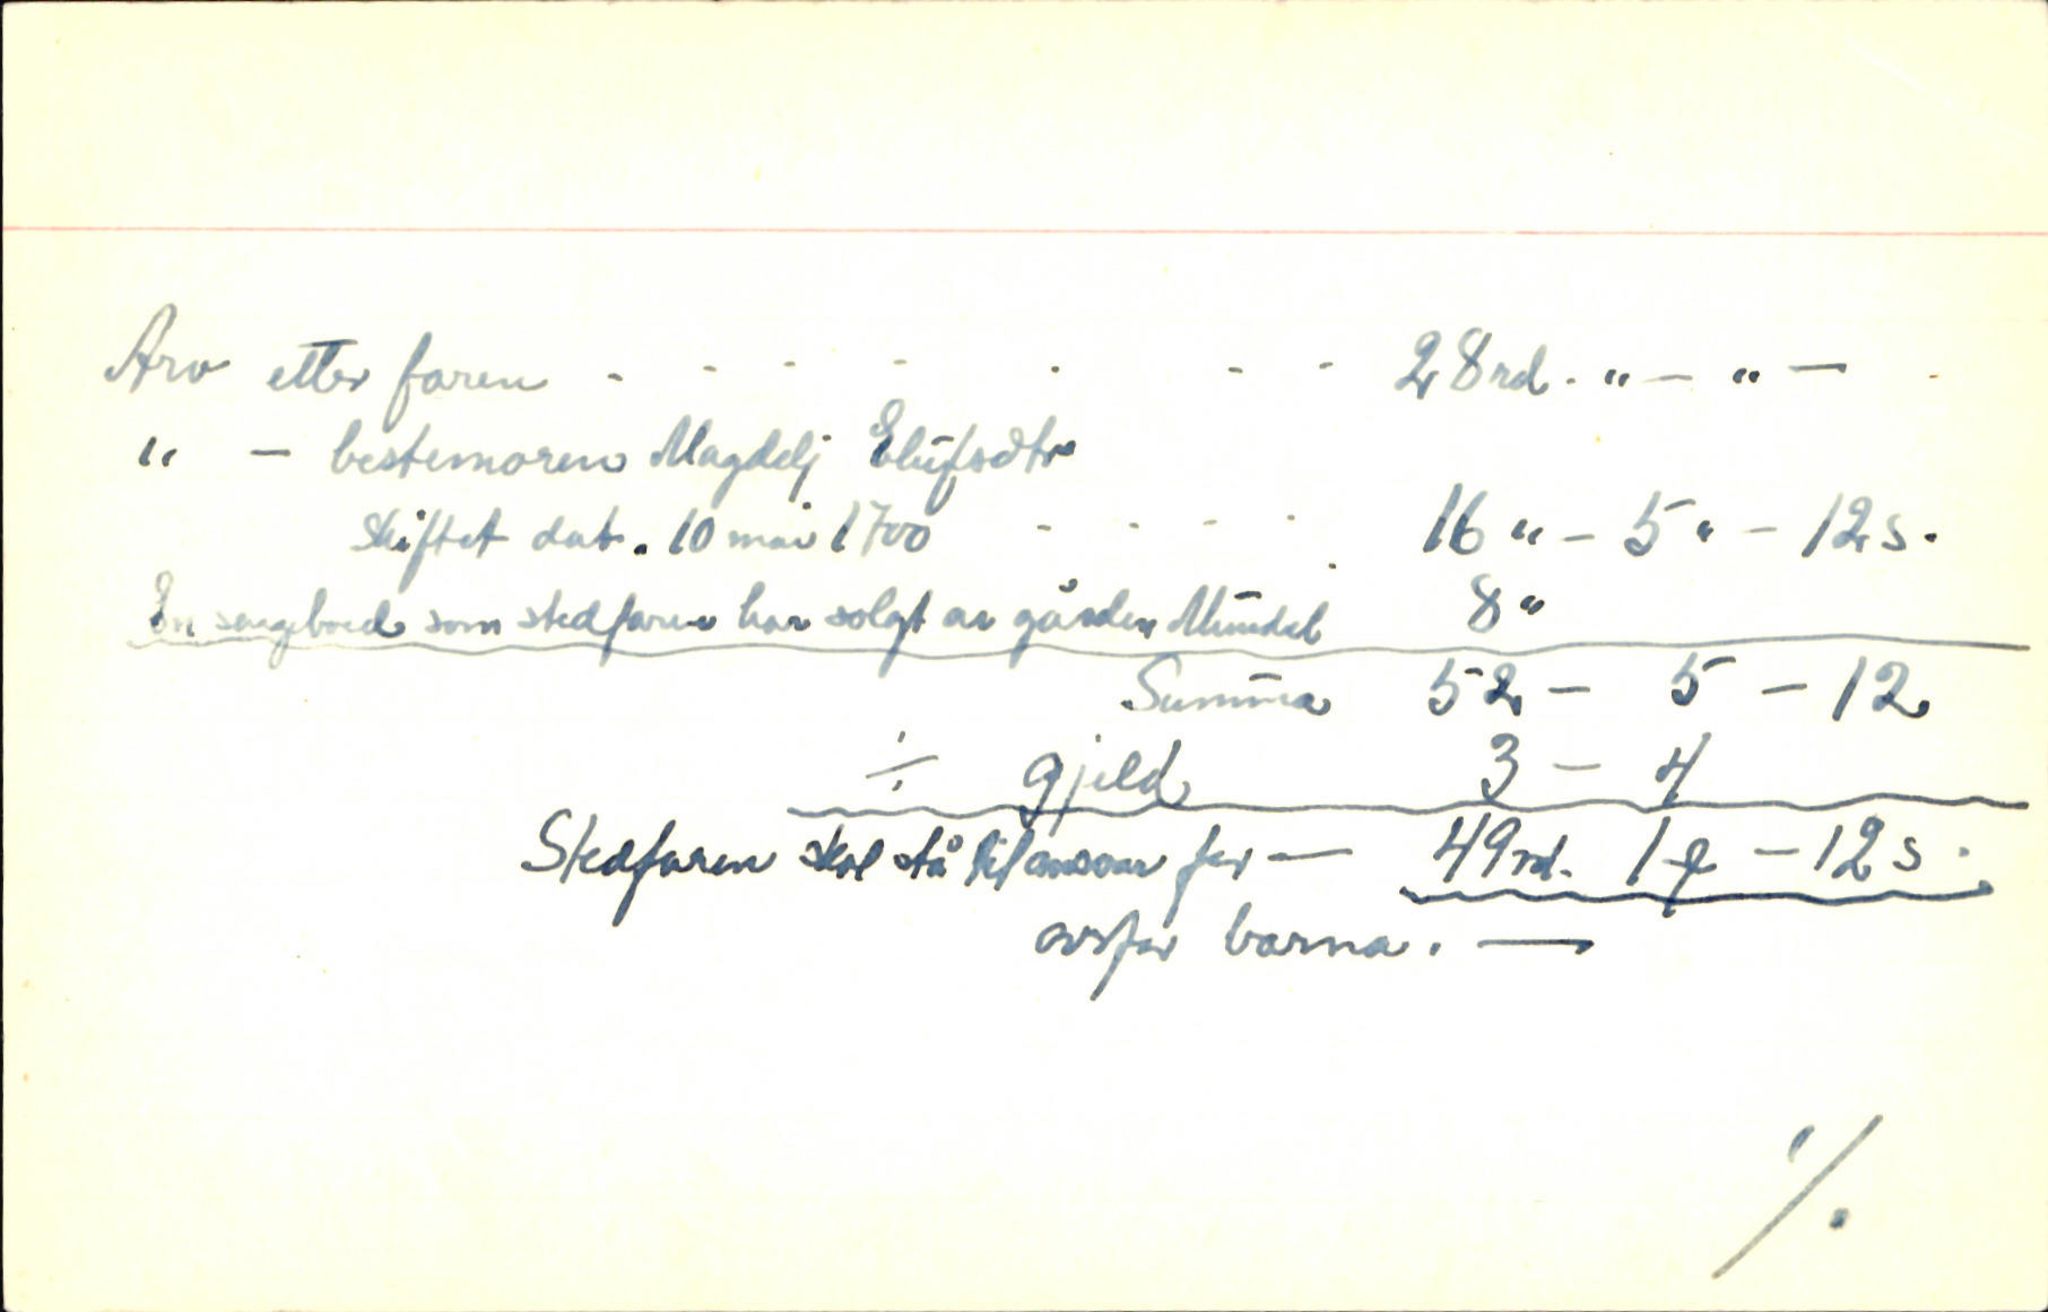 Arv etter faren - - - - - - - 28 rd. " - " -
" - bestemoren Magdelj Elufsdtr
skiftet dat. 10 mai 1700 - - - - 16 " - 5 " - 12 s.
En sengeboed som stedfaren har solgt av gården Mundal 8 "
Summa 52 - 5 - 12
÷ gjeld 3 - 4
Stedfaren skal stå til ansvar for - 49 rd. 1 - 12 s.
barna. -